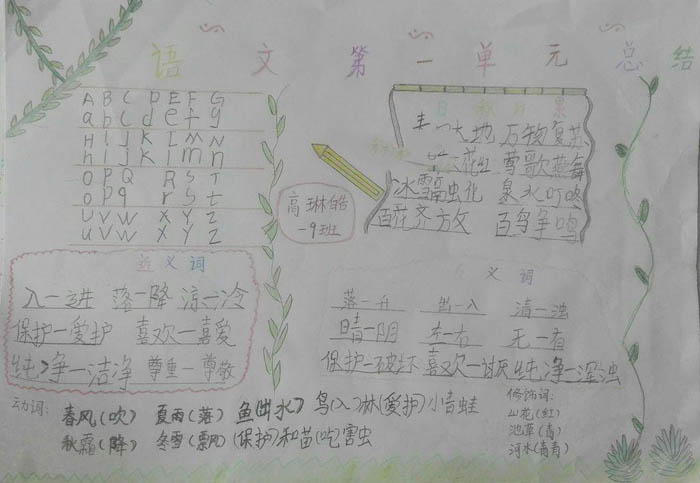 语文第一单元总结
A B C D E F G
a b c d e f g
H I J K L M N
h i j k l m n
O P Q R S T
o p q r s t
U V W X Y Z
u v w x y z
高琳皓
一9班
日积月累
大地 万物复苏
花红 莺歌燕舞
冰雪融化 泉水叮咚
百花齐放 百鸟争鸣
近义词
入一进 落一降 凉一冷
保护一爱护 喜欢一喜爱
纯净一洁净 尊重一尊敬
义词
落一升 出一入 清一浊
晴一阴 左一右 无一有
保护一破坏 喜欢一讨厌 纯净一浑浊
动词:
春风(吹) 夏雨(落) 鱼(出水) 鸟(入)林(爱护)小青蛙
秋霜(降) 冬雪(飘) (保护)和苗(吃)害虫
修饰词:
山花(红)
池草(青)
河水(青青)